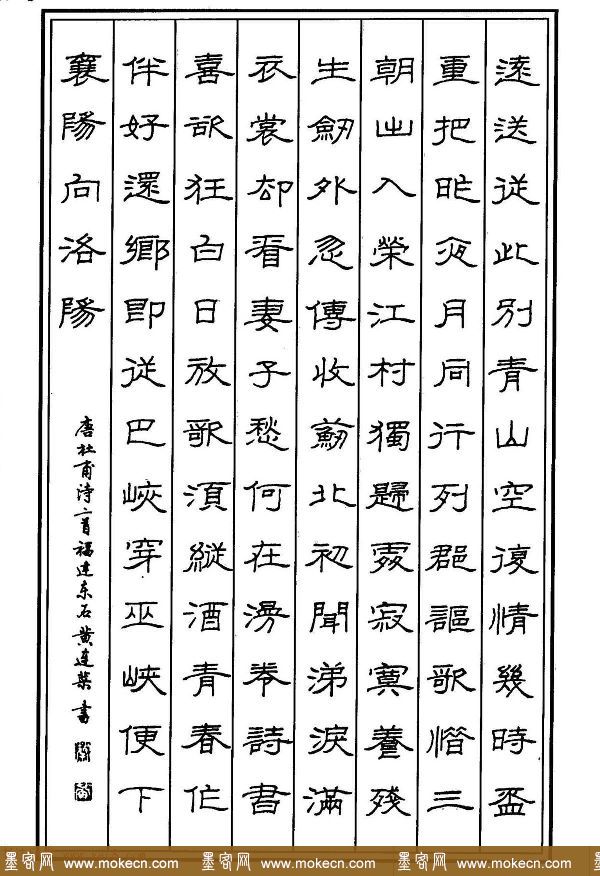 遠送從此別青山空復情幾時盃
重把昨夜月同行列郡謳歌惜三
朝出入榮江村獨歸處寂寞養殘
生劒外忽傳收薊北初聞涕淚滿
衣裳却看妻子愁何在漫卷詩書
喜欲狂白日放歌須縱酒青春作
伴好還鄉即從巴峽穿巫峽便下
襄陽向洛陽
唐杜甫诗二首福建东石黄连荣书
墨客网 www.mokecn.com 墨客网 www.mokecn.com 墨客网 www.mokecn.com